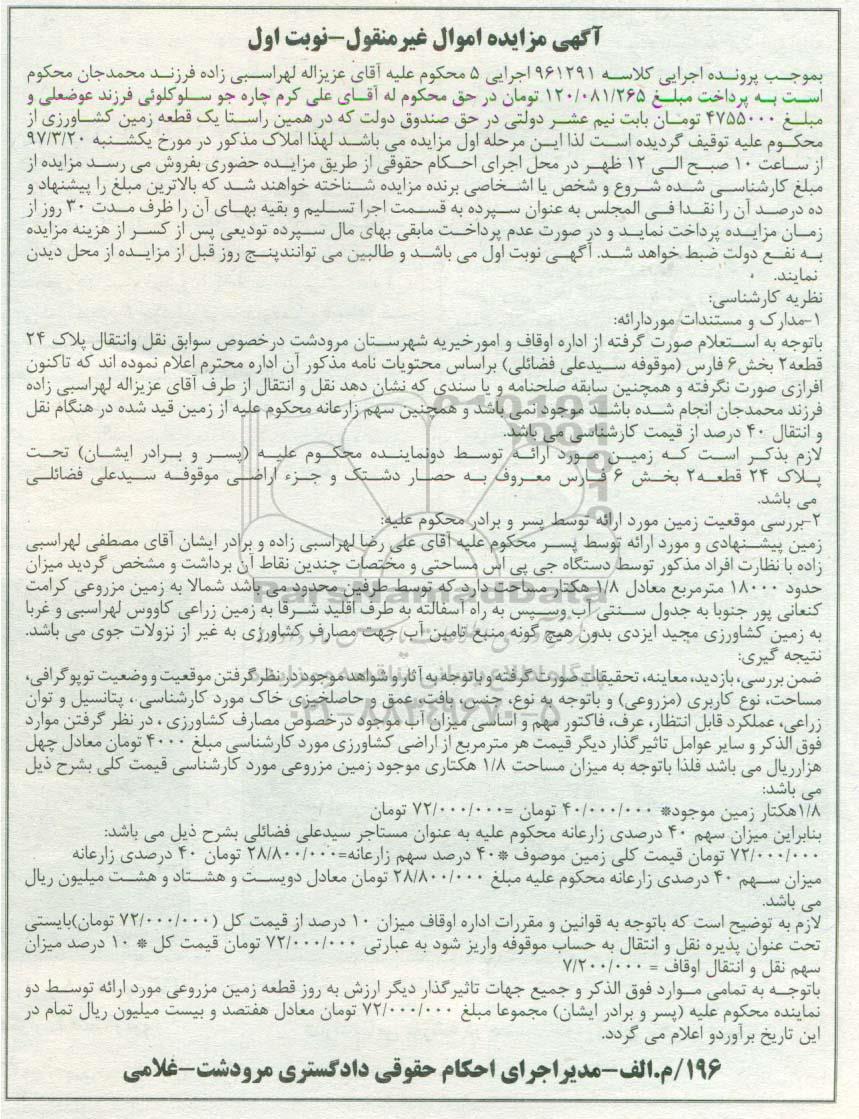 آگهی مزایده اموال غیرمنقول-نوبت اول
بموجب پرونده اجرایی کلاسه ۹۶۱۲۹۱ اجرایی ۵ محکوم علیه آقای عزیزاله لهراسبی زاده فرزند محمدجان محکوم
است به پرداخت مبلغ ۱۲۰/۰۸۱/۲۶۵ تومان در حق محکوم له آقای علی کرم چاره جو سلوکلوئی فرزند عوضعلی و
مبلغ ۴۷۵۵۰۰۰ تومان بابت نیم عشر دولتی در حق صندوق دولت که در همین راستا یک قطعه زمین کشاورزی از
محکوم علیه توقیف گردیده است لذا این مرحله اول مزایده می باشد لهذا املاک مذکور در مورخ یکشنبه ۹۷/۳/۲۰
از ساعت ۱۰ صبح الی ۱۲ ظهر در محل اجرای احکام حقوقی از طریق مزایده حضوری بفروش می رسد مزایده از
مبلغ کارشناسی شده شروع و شخص یا اشخاصی برنده مزایده شناخته خواهند شد که بالاترین مبلغ را پیشنهاد و
ده درصد آن را نقدا فی المجلس به عنوان سپرده به قسمت اجرا تسلیم و بقیه بهای آن را ظرف مدت ۳۰ روز از
زمان مزایده پرداخت نماید و در صورت عدم پرداخت مابقی بهای مال سپرده تودیعی پس از کسر از هزینه مزایده
به نفع دولت ضبط خواهد شد. آگهی نوبت اول می باشد و طالبین می توانندپنج روز قبل از مزایده از محل دیدن
نمایند.
نظریه کارشناسی:
۱-مدارک و مستندات موردارائه:
باتوجه به استعلام صورت گرفته از اداره اوقاف و امورخیریه شهرستان مرودشت درخصوص سوابق نقل وانتقال پلاک ۲۴
قطعه۲ بخش۶ فارس (موقوفه سیدعلی فضائلی) براساس محتویات نامه مذکور آن اداره محترم اعلام نموده اند که تاکنون
افرازی صورت نگرفته و همچنین سابقه صلحنامه و یا سندی که نشان دهد نقل و انتقال از طرف آقای عزیزاله لهراسبی زاده
فرزند محمدجان انجام شده باشد موجود نمی باشد و همچنین سهم زارعانه محکوم علیه از زمین قید شده در هنگام نقل
و انتقال ۴۰ درصد از قیمت کارشناسی می باشد.
لازم بذکر است که زمین مورد ارائه توسط دونماینده محکوم علیه (پسر و برادر ایشان) تحت
پلاک ۲۴ قطعه۲ بخش ۶ فارس معروف به حصار دشتک و جزء اراضی موقوفه سیدعلی فضائلی
می باشد.
۲-بررسی موقعیت زمین مورد ارائه توسط پسر و برادر محکوم علیه:
زمین پیشنهادی و مورد ارائه توسط پسر محکوم علیه آقای علی رضا لهراسبی زاده و برادر ایشان آقای مصطفی لهراسبی
زاده با نظارت افراد مذکور توسط دستگاه جی پی اس مساحتی و مختصات چندین نقاط آن برداشت و مشخص گردید میزان
حدود ۱۸۰۰۰ مترمربع معادل ۱/۸ هکتار مساحت دارد که توسط طرفین محدود می باشد شمالا به زمین مزروعی کرامت
کنعانی پور جنوبا به جدول سنتی آب وسپس به راه آسفالته به طرف اقلید شرقا به زمین زراعی کاووس لهراسبی و غربا
به زمین کشاورزی مجید ایزدی بدون هیچ گونه منبع تامین آب جهت مصارف کشاورزی به غیر از نزولات جوی می باشد.
نتیجه گیری:
ضمن بررسی، بازدید، معاینه، تحقیقات صورت گرفته و باتوجه به آثار و شواهد موجود در نظر گرفتن موقعیت و وضعیت توپوگرافی،
مساحت، نوع کاربری (مزروعی) و باتوجه به نوع، جنس، بافت، عمق و حاصلخیزی خاک مورد کارشناسی ، پتانسیل و توان
زراعی، عملکرد قابل انتظار، عرف، فاکتور مهم و اساسی میزان آب موجود درخصوص مصارف کشاورزی ، در نظر گرفتن موارد
فوق الذکر و سایر عوامل تاثیرگذار دیگر قیمت هر مترمربع از اراضی کشاورزی مورد کارشناسی مبلغ ۴۰۰۰ تومان معادل چهل
هزارریال می باشد فلذا باتوجه به میزان مساحت ۱/۸ هکتاری موجود زمین مزروعی مورد کارشناسی قیمت کلی بشرح ذیل
می باشد:
۱/۸هکتار زمین موجود* ۴۰/۰۰۰/۰۰۰ تومان =۷۲/۰۰۰/۰۰۰ تومان
بنابراین میزان سهم ۴۰ درصدی زارعانه محکوم علیه به عنوان مستاجر سیدعلی فضائلی بشرح ذیل می باشد:
۷۲/۰۰۰/۰۰۰ تومان قیمت کلی زمین موصوف *۴۰ درصد سهم زارعانه=۲۸/۸۰۰/۰۰۰ تومان ۴۰ درصدی زارعانه
میزان سهم ۴۰ درصدی زارعانه محکوم علیه مبلغ ۲۸/۸۰۰/۰۰۰ تومان معادل دویست و هشتاد و هشت میلیون ریال
می باشد.
لازم به توضیح است که باتوجه به قوانین و مقررات اداره اوقاف میزان ۱۰ درصد از قیمت کل (۷۲/۰۰۰/۰۰۰ تومان)بایستی
تحت عنوان پذیره نقل و انتقال به حساب موقوفه واریز شود به عبارتی ۷۲/۰۰۰/۰۰۰ تومان قیمت کل * ۱۰ درصد میزان
سهم نقل و انتقال اوقاف = ۷/۲۰۰/۰۰۰
باتوجه به تمامی موارد فوق الذکر و جمیع جهات تاثیرگذار دیگر ارزش به روز قطعه زمین مزروعی مورد ارائه توسط دو
نماینده محکوم علیه (پسر و برادر ایشان) مجموعا مبلغ ۷۲/۰۰۰/۰۰۰ تومان معادل هفتصد و بیست میلیون ریال تمام در
این تاریخ برآوردو اعلام می گردد.
۱۹۶/م.الف-مدیراجرای احکام حقوقی دادگستری مرودشت-غلامی